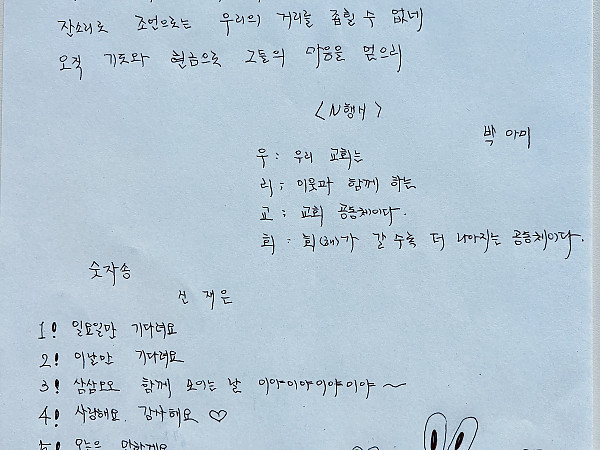 잔소리로 조언으로는 우리의 거리를 좁힐 수 없네
오직 기도와 헌금으로 그들의 마음을 얻으리
<N행시>
박 아미
우 : 우리 교회는
리 ; 이웃과 함께 하는
교 ; 교회 공동체이다.
회 : 회(해)가 갈 수록 더 나아지는 공동체이다.
숫자송
선 재은
1! 일요일만 기다려요
2! 이날만 기다려요
3! 삼삼오오 함께 모이는 날 이야이야이야이야 ~
4! 사랑해요 감사해요 ♡
5! 오늘은